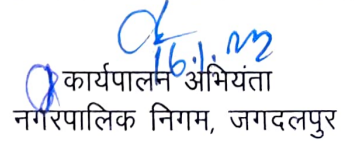 16.1.
कार्यपालन अभियंता
नगरपालिक निगम, जगदलपुर